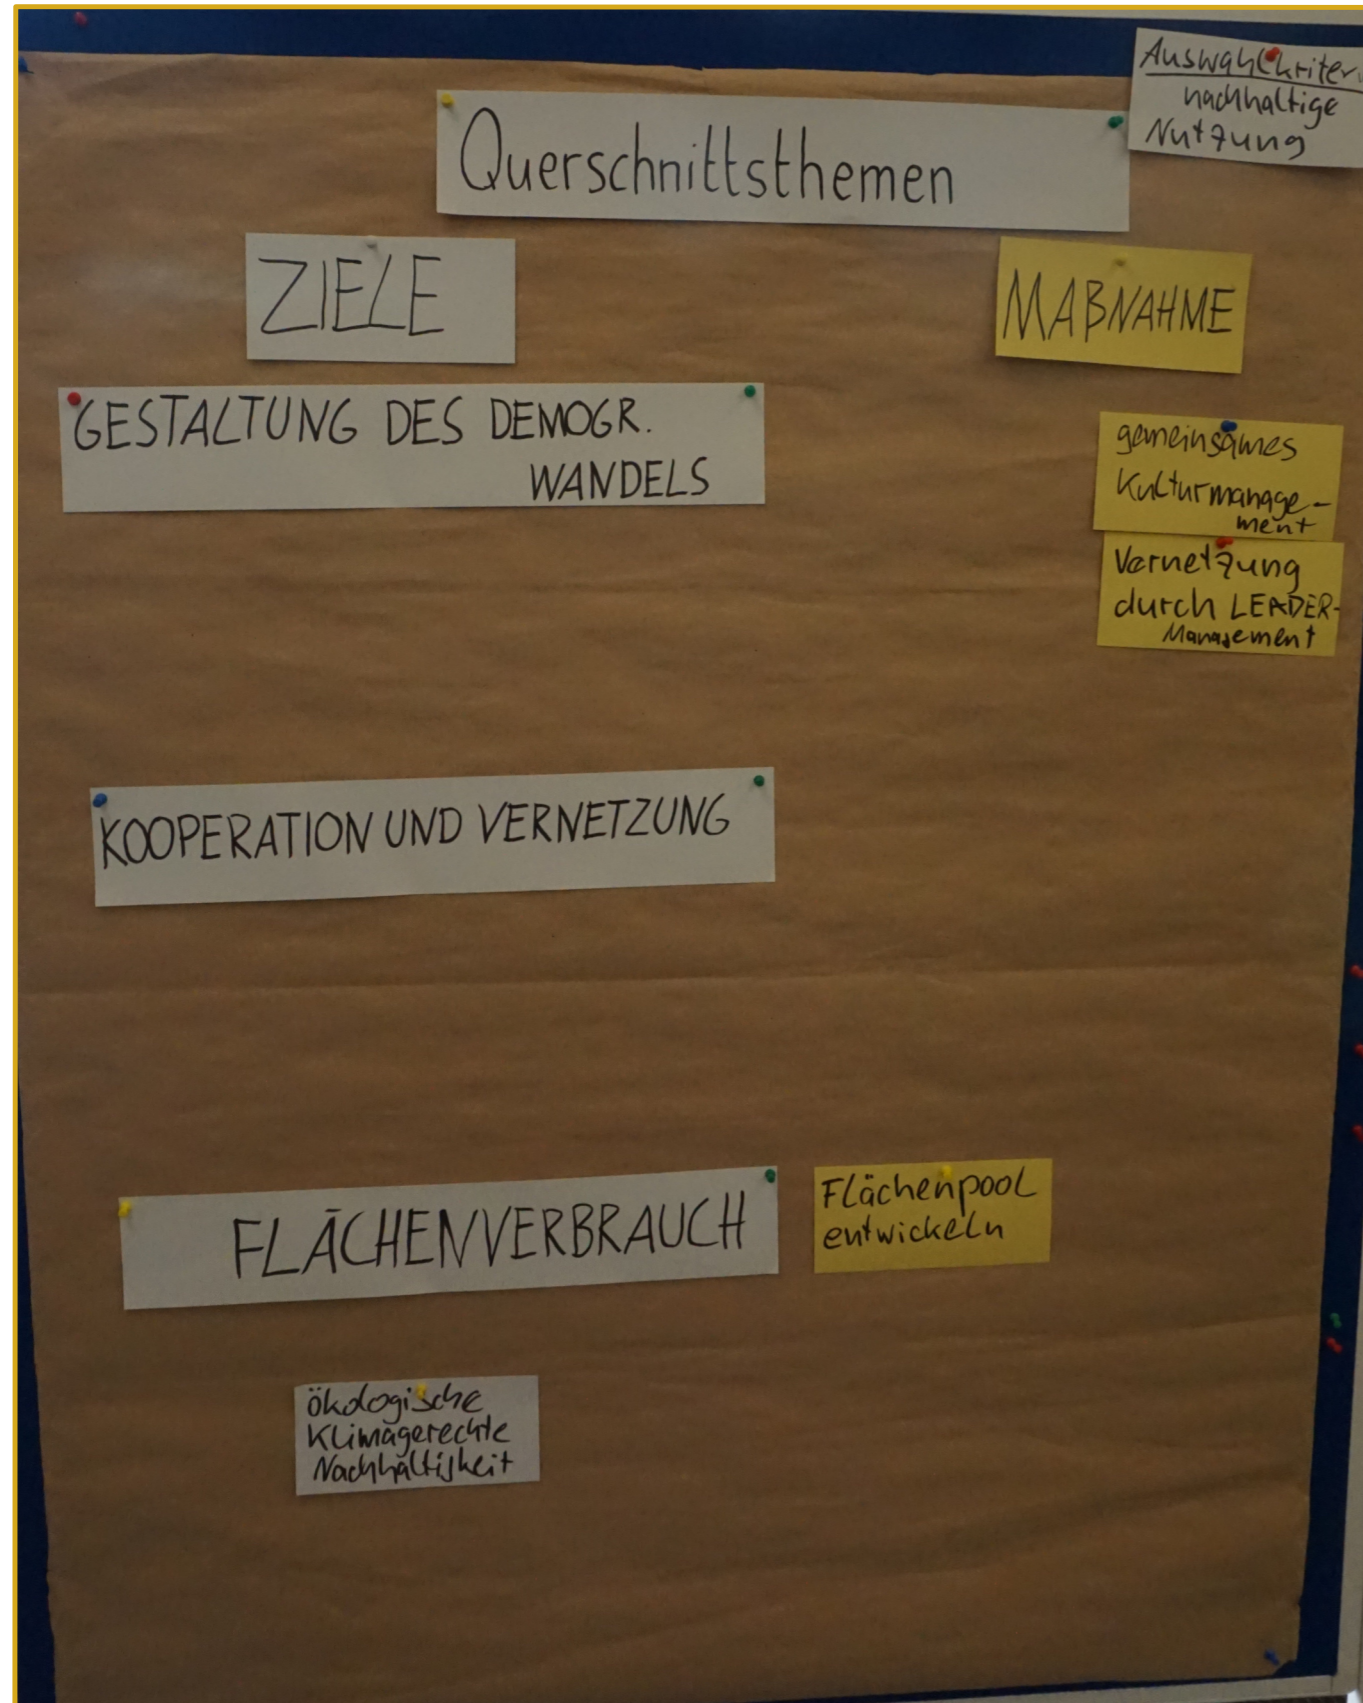 Querschnittsthemen
Auswahlkriter
nachhaltige
Nutzung
ZIELE
MAßNAHME
GESTALTUNG DES DEMOGR.
WANDELS
gemeinsames
Kulturmanage-
ment
Vernetzung
durch LEADER-
Management
KOOPERATION UND VERNETZUNG
FLÄCHENVERBRAUCH
Flächenpool
entwickeln
ökologische
Klimagerechte
Nachhaltigkeit